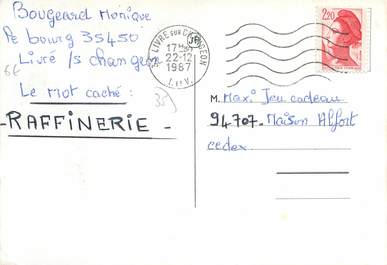 Bougeard Monique
Le bourg 35450
Livré /s changeon
6€
Le mot caché :
35
- RAFFINERIE -
LIVRE SUR CHANGEON
17 H
22-12
1987
I. et V.
2,20
M. Maxi Jeu cadeau
94707. Maison Alfort
cedex